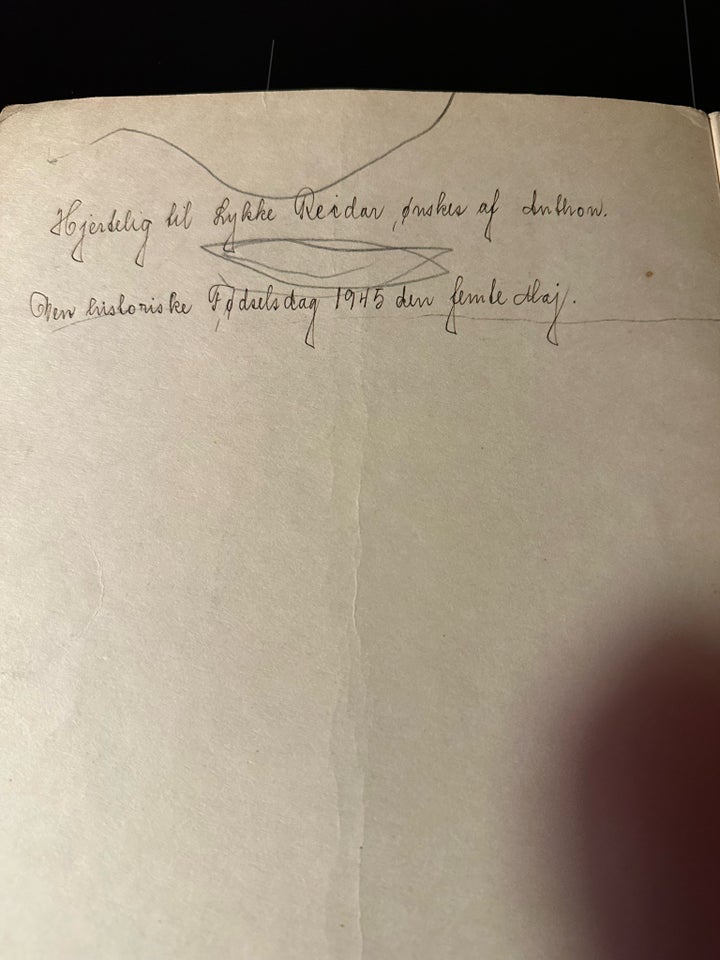 Hjertelig til Lykke Reidar, ønskes af Anthon.
Den historiske Fødselsdag 1945 den femte Maj.